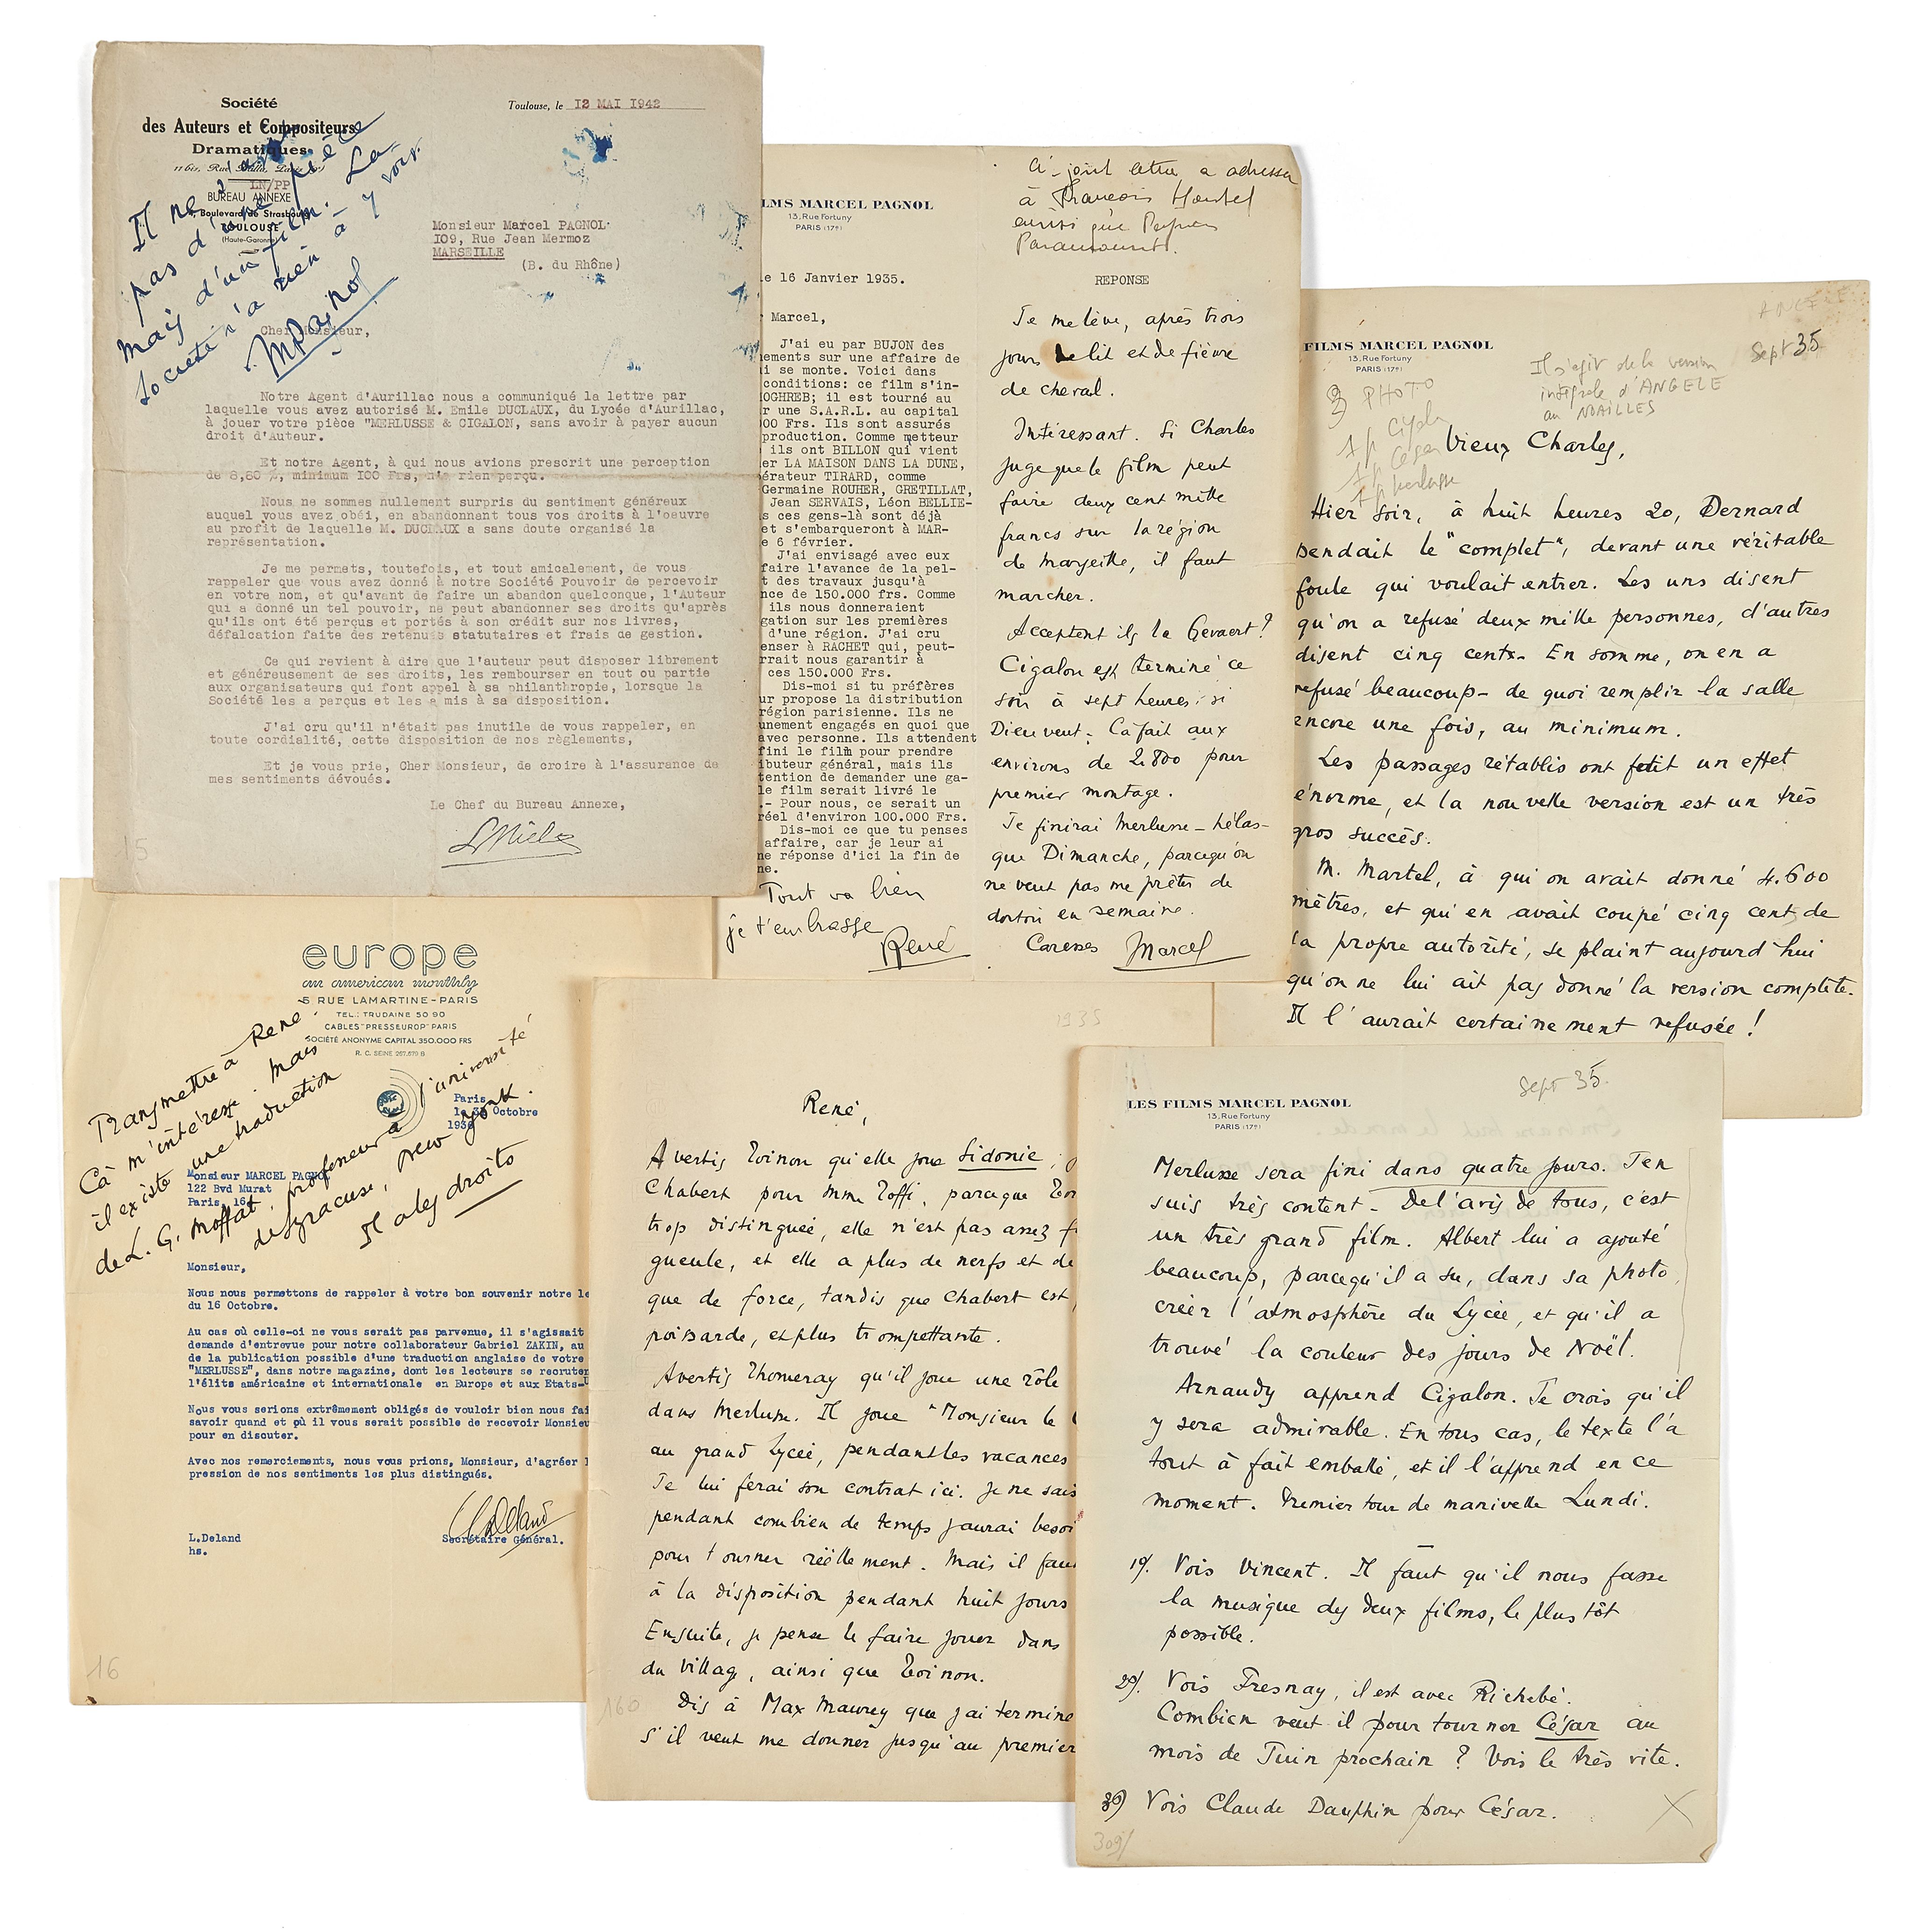 Société
des Auteurs et Compositeurs
Dramatiques
11 bis, Rue Ballu, Paris (9e)
LN/PP
BUREAU ANNEXE
Boulevard de Strasbourg
TOULOUSE
(Haute-Garonne)
Toulouse, le 12 MAI 1942
Il ne s'agit
pas d'une pièce
mais d'un film. La
Société n'a rien à y voir.
MPagnol
Monsieur Marcel PAGNOL
109, Rue Jean Mermoz
MARSEILLE
(B. du Rhône)
Cher Monsieur,
Notre Agent d'Aurillac nous a communiqué la lettre par
laquelle vous avez autorisé M. Emile DUCLAUX, du Lycée d'Aurillac,
à jouer votre pièce "MERLUSSE & CIGALON, sans avoir à payer aucun
droit d'Auteur.
Et notre Agent, à qui nous avions prescrit une perception
de 8,80 %, minimum 100 Frs, n'a rien perçu.
Nous ne sommes nullement surpris du sentiment généreux
auquel vous avez obéi, en abandonnant tous vos droits à l'oeuvre
au profit de laquelle M. DUCLAUX a sans doute organisé la
représentation.
Je me permets, toutefois, et tout amicalement, de vous
rappeler que vous avez donné à notre Société Pouvoir de percevoir
en votre nom, et qu'avant de faire un abandon quelconque, l'Auteur
qui a donné un tel pouvoir, ne peut abandonner ses droits qu'après
qu'ils ont été perçus et portés à son crédit sur nos livres,
défalcation faite des retenues statutaires et frais de gestion.
Ce qui revient à dire que l'auteur peut disposer librement
et généreusement de ses droits, les rembourser en tout ou partie
aux organisateurs qui font appel à sa philanthropie, lorsque la
Société les a perçus et les a mis à sa disposition.
J'ai cru qu'il n'était pas inutile de vous rappeler, en
toute cordialité, cette disposition de nos règlements,
Et je vous prie, Cher Monsieur, de croire à l'assurance de
mes sentiments dévoués.
Le Chef du Bureau Annexe,
15
LMS MARCEL PAGNOL
13, Rue Fortuny
PARIS (17e)
le 16 Janvier 1935.
Marcel,
J'ai eu par BUJON des
ements sur une affaire de
i se monte. Voici dans
conditions: ce film s'in-
OGHREB; il est tourné au
r une S.A.R.L. au capital
00 Frs. Ils sont assurés
production. Comme metteur
ils ont BILLON qui vient
er LA MAISON DANS LA DUNE,
érateur TIRARD, comme
Germaine ROUHER, GRETILLAT,
Jean SERVAIS, Léon BELLIE-
s ces gens-là sont déjà
et s'embarqueront à MAR-
e 6 février.
J'ai envisagé avec eux
faire l'avance de la pel-
t des travaux jusqu'à
nce de 150.000 frs. Comme
ils nous donneraient
gation sur les premières
d'une région. J'ai cru
enser à RACHET qui, peut-
rrait nous garantir à
ces 150.000 Frs.
Dis-moi si tu préfères
ur propose la distribution
région parisienne. Ils ne
unement engagés en quoi que
avec personne. Ils attendent
fini le film pour prendre
ibuteur général, mais ils
tention de demander une ga-
le film serait livré le
.- Pour nous, ce serait un
réel d'environ 100.000 Frs.
Dis-moi ce que tu penses
affaire, car je leur ai
ne réponse d'ici la fin de
ne.
Tout va bien
je t'embrasse
René
Ci-joint lettre a adresser
à François
ainsi que
Paramount.
REPONSE
Je me lève, après trois
jours de lit et de fièvre
de cheval.
Intéressant. Si Charles
juge que le film peut
faire deux cent mille
francs sur la région
de Marseille, il faut
marcher.
Acceptent ils la Gevaert?
Cigalon est terminé ce
soir à sept heures, si
Dieu veut. Cà fait aux
environs de 2.800 pour
premier montage.
Je finirai Merlusse – hélas –
que Dimanche, parcequ'on
ne veut pas me prêter de
dortoir en semaine.
Caresses Marcel
FILMS MARCEL PAGNOL
13, Rue Fortuny
PARIS (17e)
Sept 35
Il s'agit de la version
intégrale d'ANGELE
au NOAILLES
3 PHOTO
1 p Cigalon
1 p César
1 p Merlusse
Vieux Charles,
Hier soir, à huit heures 20, Bernard
pendait le "complet", devant une véritable
foule qui voulait entrer. Les uns disent
qu'on a refusé deux mille personnes, d'autres
disent cinq cents. En somme, on en a
refusé beaucoup – de quoi remplir la salle
encore une fois, au minimum.
Les passages rétablis ont fait un effet
énorme, et la nouvelle version est un très
gros succès.
M. Martel, à qui on avait donné 4.600
mètres, et qui en avait coupé cinq cent de
sa propre autorité, se plaint aujourd'hui
qu'on ne lui ait pas donné la version complète.
Il l'aurait certainement refusée!
europe
an american monthly
5 RUE LAMARTINE - PARIS
TEL.: TRUDAINE 50 90
CABLES "PRESSEUROP" PARIS
SOCIÉTÉ ANONYME CAPITAL 350.000 FRS
R. C. SEINE 267.679 B
Transmettre à René.
Cà m'intéresse. Mais
il existe une traduction
de L. G. Moffat, professeur à l'université
de Syracuse, New York.
Il a les droits
Paris
le 31 Octobre
193
Monsieur MARCEL PAGNOL
122 Bvd Murat
Paris, 16
Monsieur,
Nous nous permettons de rappeler à votre bon souvenir notre le
du 16 Octobre.
Au cas où celle-ci ne vous serait pas parvenue, il s'agissait
demande d'entrevue pour notre collaborateur Gabriel ZAKIN, au
de la publication possible d'une traduction anglaise de votre
"MERLUSSE", dans notre magazine, dont les lecteurs se recruten
l'élite américaine et internationale en Europe et aux Etats-U
Nous vous serions extrêmement obligés de vouloir bien nous fai
savoir quand et où il vous serait possible de recevoir Monsieu
pour en discuter.
Avec nos remerciements, nous vous prions, Monsieur, d'agréer l
pression de nos sentiments les plus distingués.
L.Deland
hs.
Secrétaire Général.
16
1935
René,
Avertis Toinon qu'elle joue Sidonie,
Chabert pour Mme Toffi, parceque Toi
trop distinguée, elle n'est pas assez f
gueule, et elle a plus de nerfs et de
que de force, tandis que Chabert est
poissarde, et plus trompettante.
Avertis Thomeray qu'il joue une rôle
dans Merlusse. Il joue "Monsieur le
au grand lycée, pendant les vacances
Je lui ferai son contrat ici. Je ne sais
pendant combien de temps j'aurai besoi
pour tourner réellement. Mais il fau
à la disposition pendant huit jours
Ensuite, je pense le faire jouer dans
du village, ainsi que Toinon.
Dis à Max Maurey que j'ai terminé
S'il veut me donner jusqu'au premier
160
LES FILMS MARCEL PAGNOL
13, Rue Fortuny
PARIS (17e)
Sept 35.
Merlusse sera fini dans quatre jours. J'en
suis très content – De l'avis de tous, c'est
un très grand film. Albert lui a ajouté
beaucoup, parcequ'il a su, dans sa photo,
créer l'atmosphère du Lycée, et qu'il a
trouvé la couleur des jours de Noël.
Arnaudy apprend Cigalon. Je crois qu'il
y sera admirable. En tous cas, le texte l'a
tout à fait emballé, et il l'apprend en ce
moment. Premier tour de manivelle Lundi.
1º/. Vois Vincent. Il faut qu'il nous fasse
la musique des deux films, le plus tôt
possible.
2º/. Vois Fresnay, il est avec Richebé.
Combien veut il pour tourner César au
mois de Juin prochain? Vois le très vite.
3º) Vois Claude Dauphin pour César.
309/